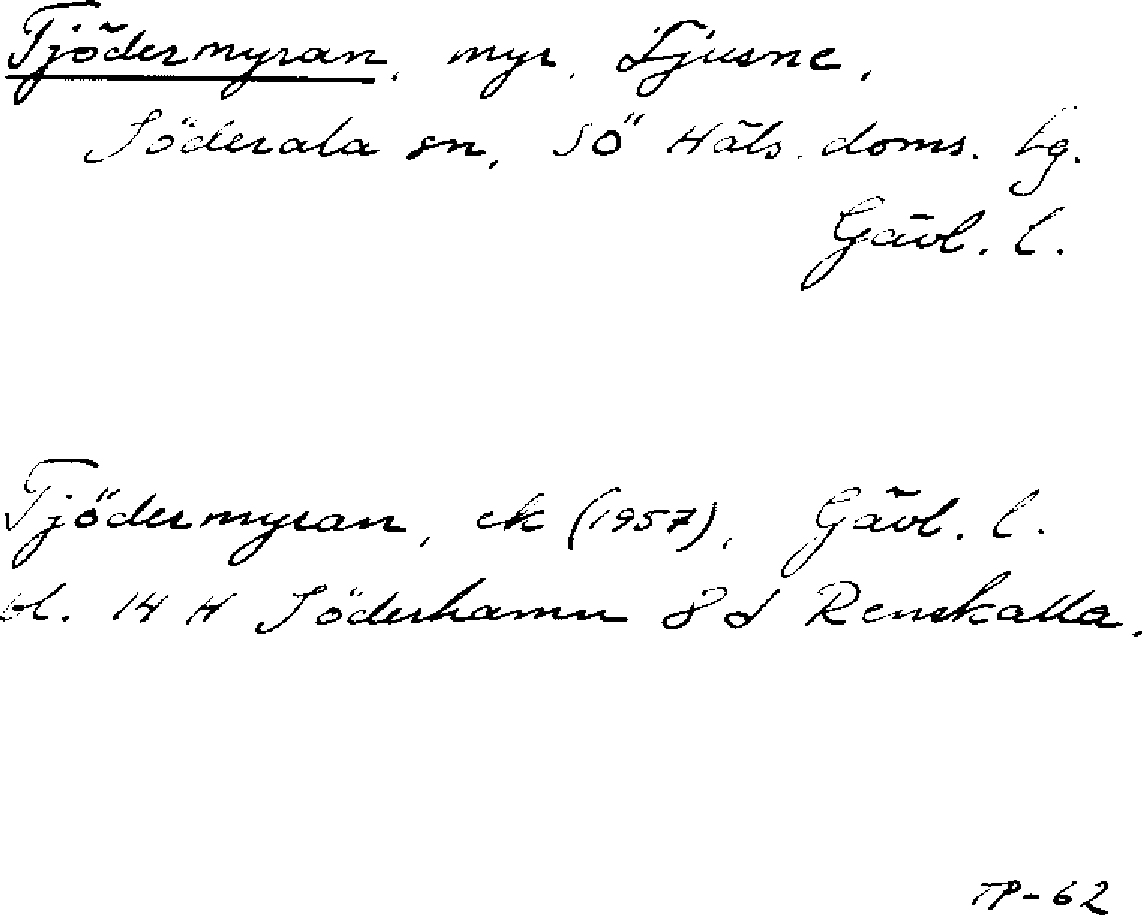 Tjödermyran, myr, Ljusne,
Söderala sn, SÖ Häls. doms. tg.
Gävl. l.
Tjödermyran, ek (1957), Gävl. l.
bl. 14 H Söderhamn 8 d Renskalla.
TP-62